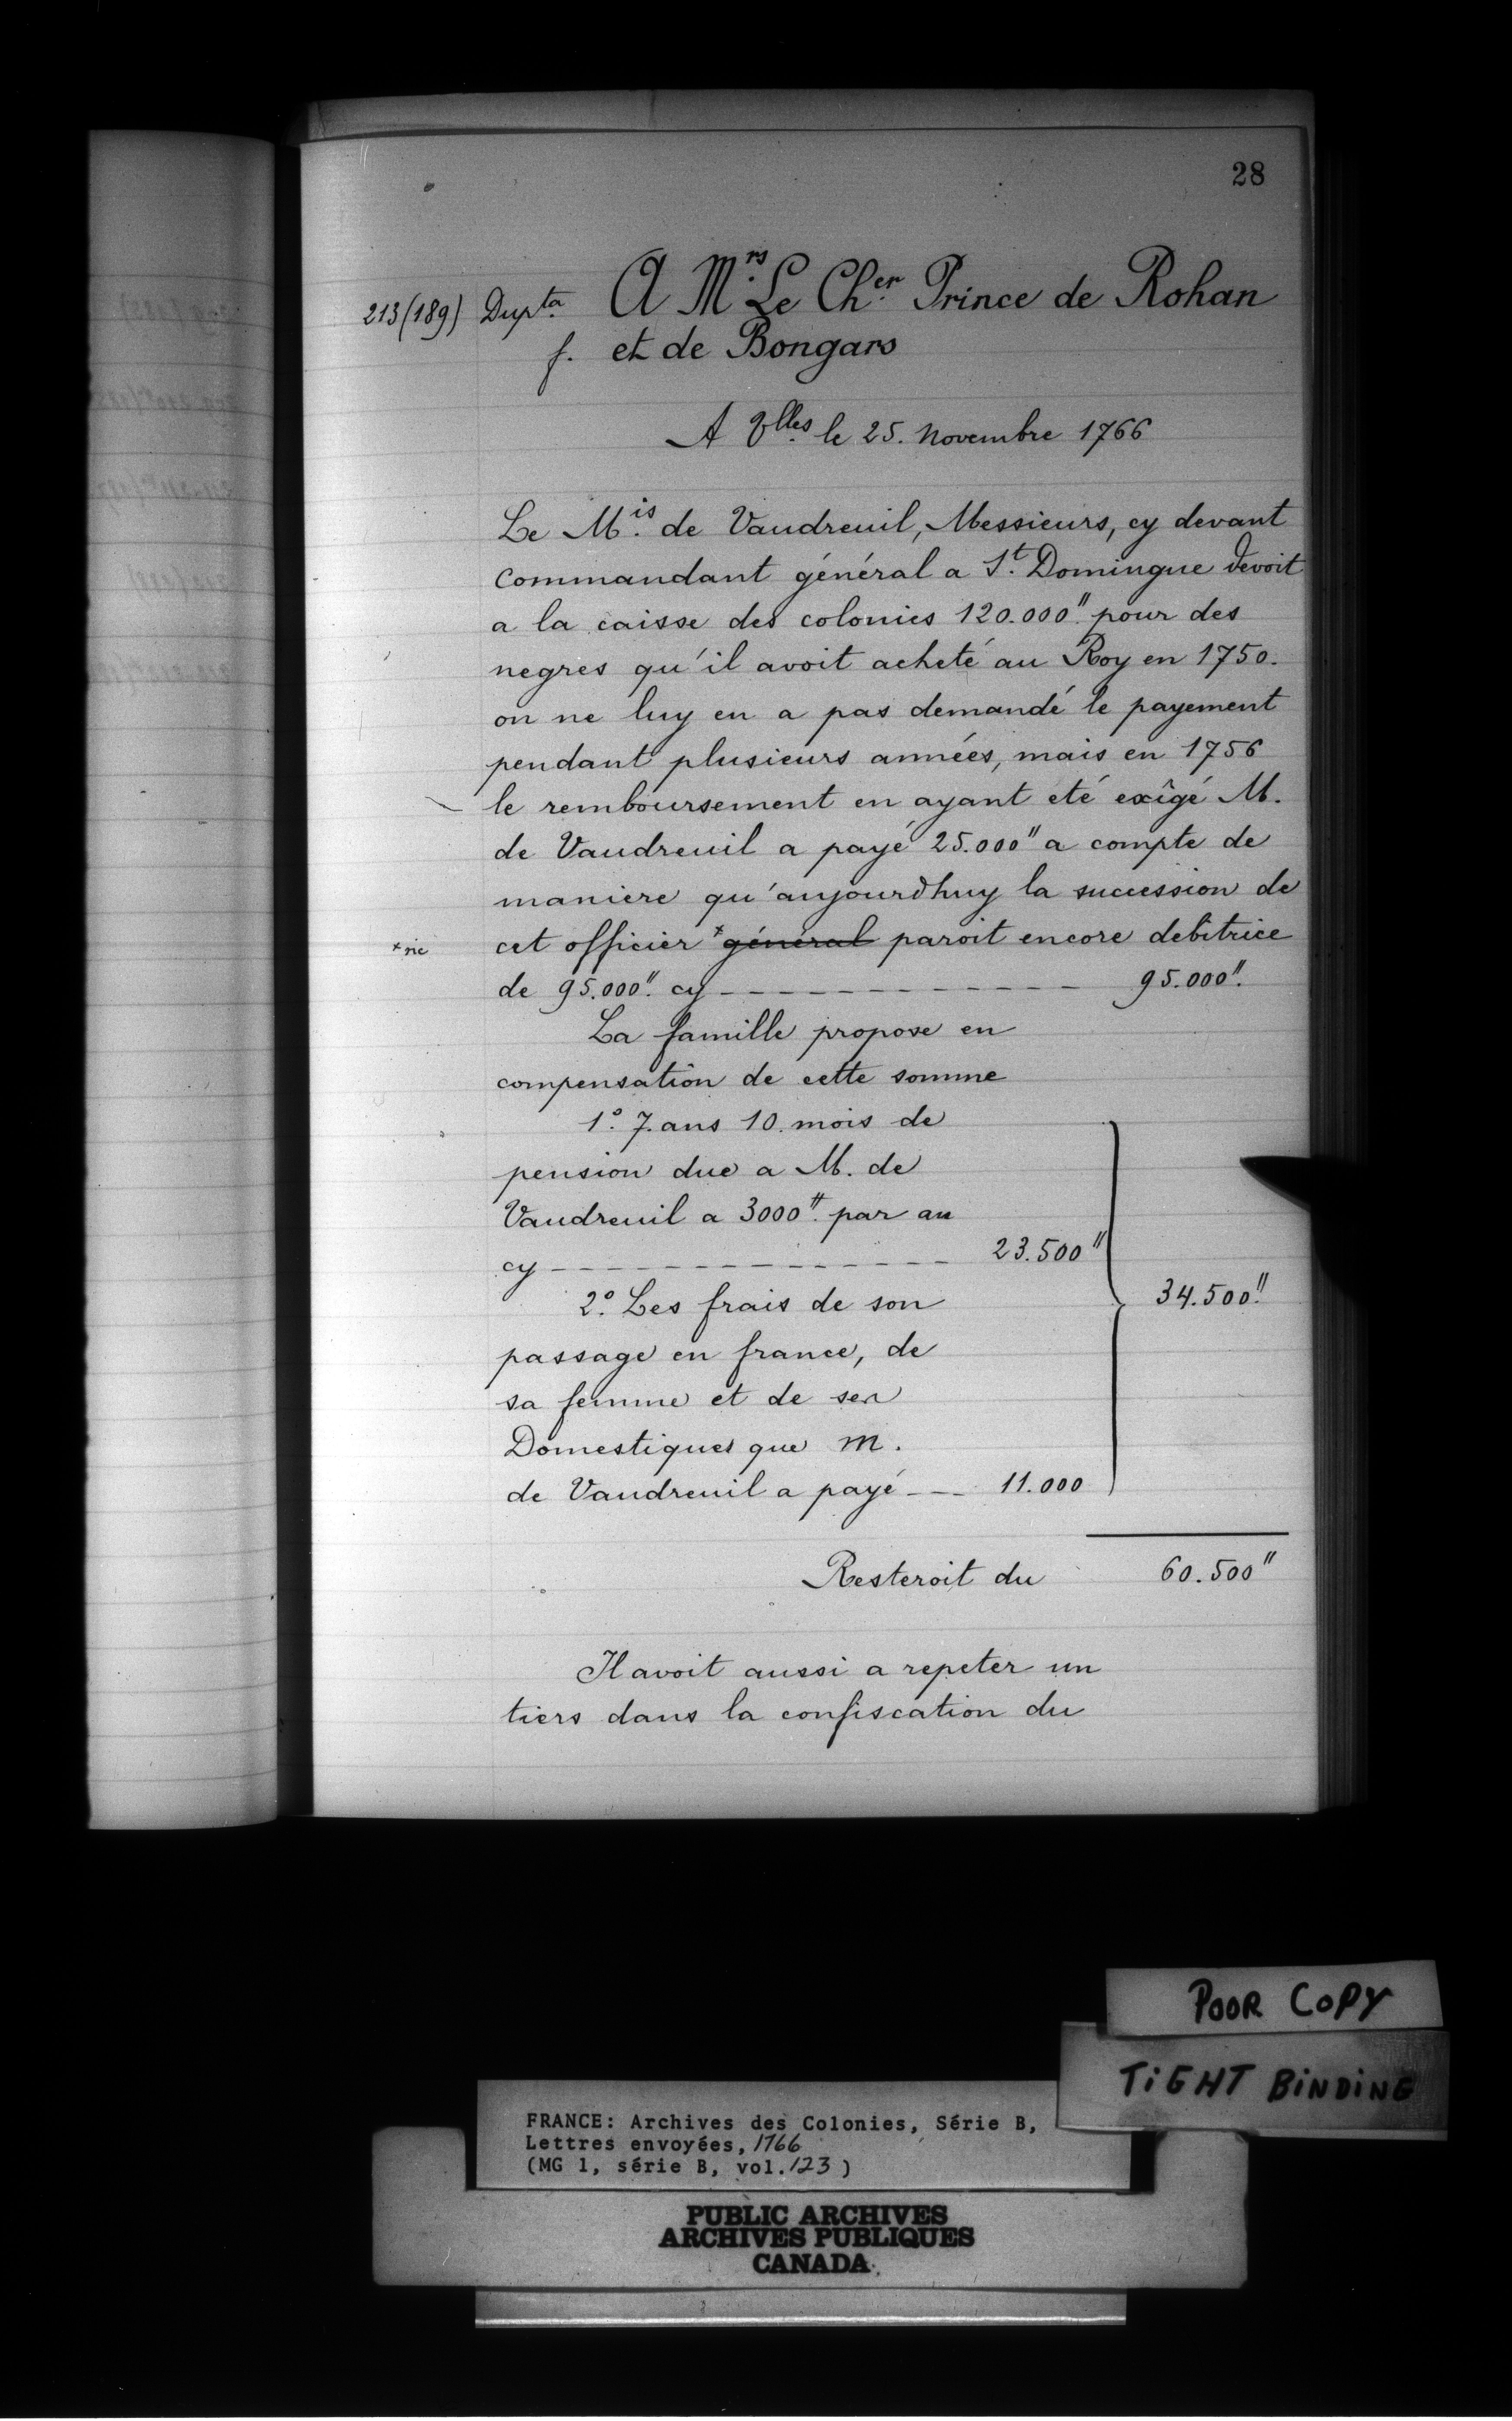 28
213(189) Dupta. A Mrs. Le Cher. Prince de Rohan
f. et de Bongars
A Vlles. le 25. Novembre 1766
Le Mis. de Vaudreuil, Messieurs, cy devant
commandant général a St. Domingue devoit
a la caisse des colonies 120.000". pour des
negres qu'il avoit acheté au Roy en 1750.
on ne luy en a pas demandé le payement
pendant plusieurs années, mais en 1756
le remboursement en ayant eté exigé M.
de Vaudreuil a payé 25.000" a compte de
maniere qu'aujourdhuy la succession de
* sic cet officier * général paroit encore debitrice
de 95.000". cy ------------- 95.000".
La famille propose en
compensation de cette somme
1.° 7. ans 10. mois de
pension due a M. de
Vaudreuil a 3000". par an
cy -------------- 23.500"
2.° Les frais de son 34.500".
passage en france, de
sa femme et de ses
Domestiques que M.
de Vaudreuil a payé --- 11.000
Resteroit du 60.500"
Il avoit aussi a repeter un
tiers dans la confiscation du
POOR COPY
TIGHT BINDING
FRANCE: Archives des Colonies, Série B,
Lettres envoyées, 1766
(MG 1, série B, vol. 123 )
PUBLIC ARCHIVES
ARCHIVES PUBLIQUES
CANADA